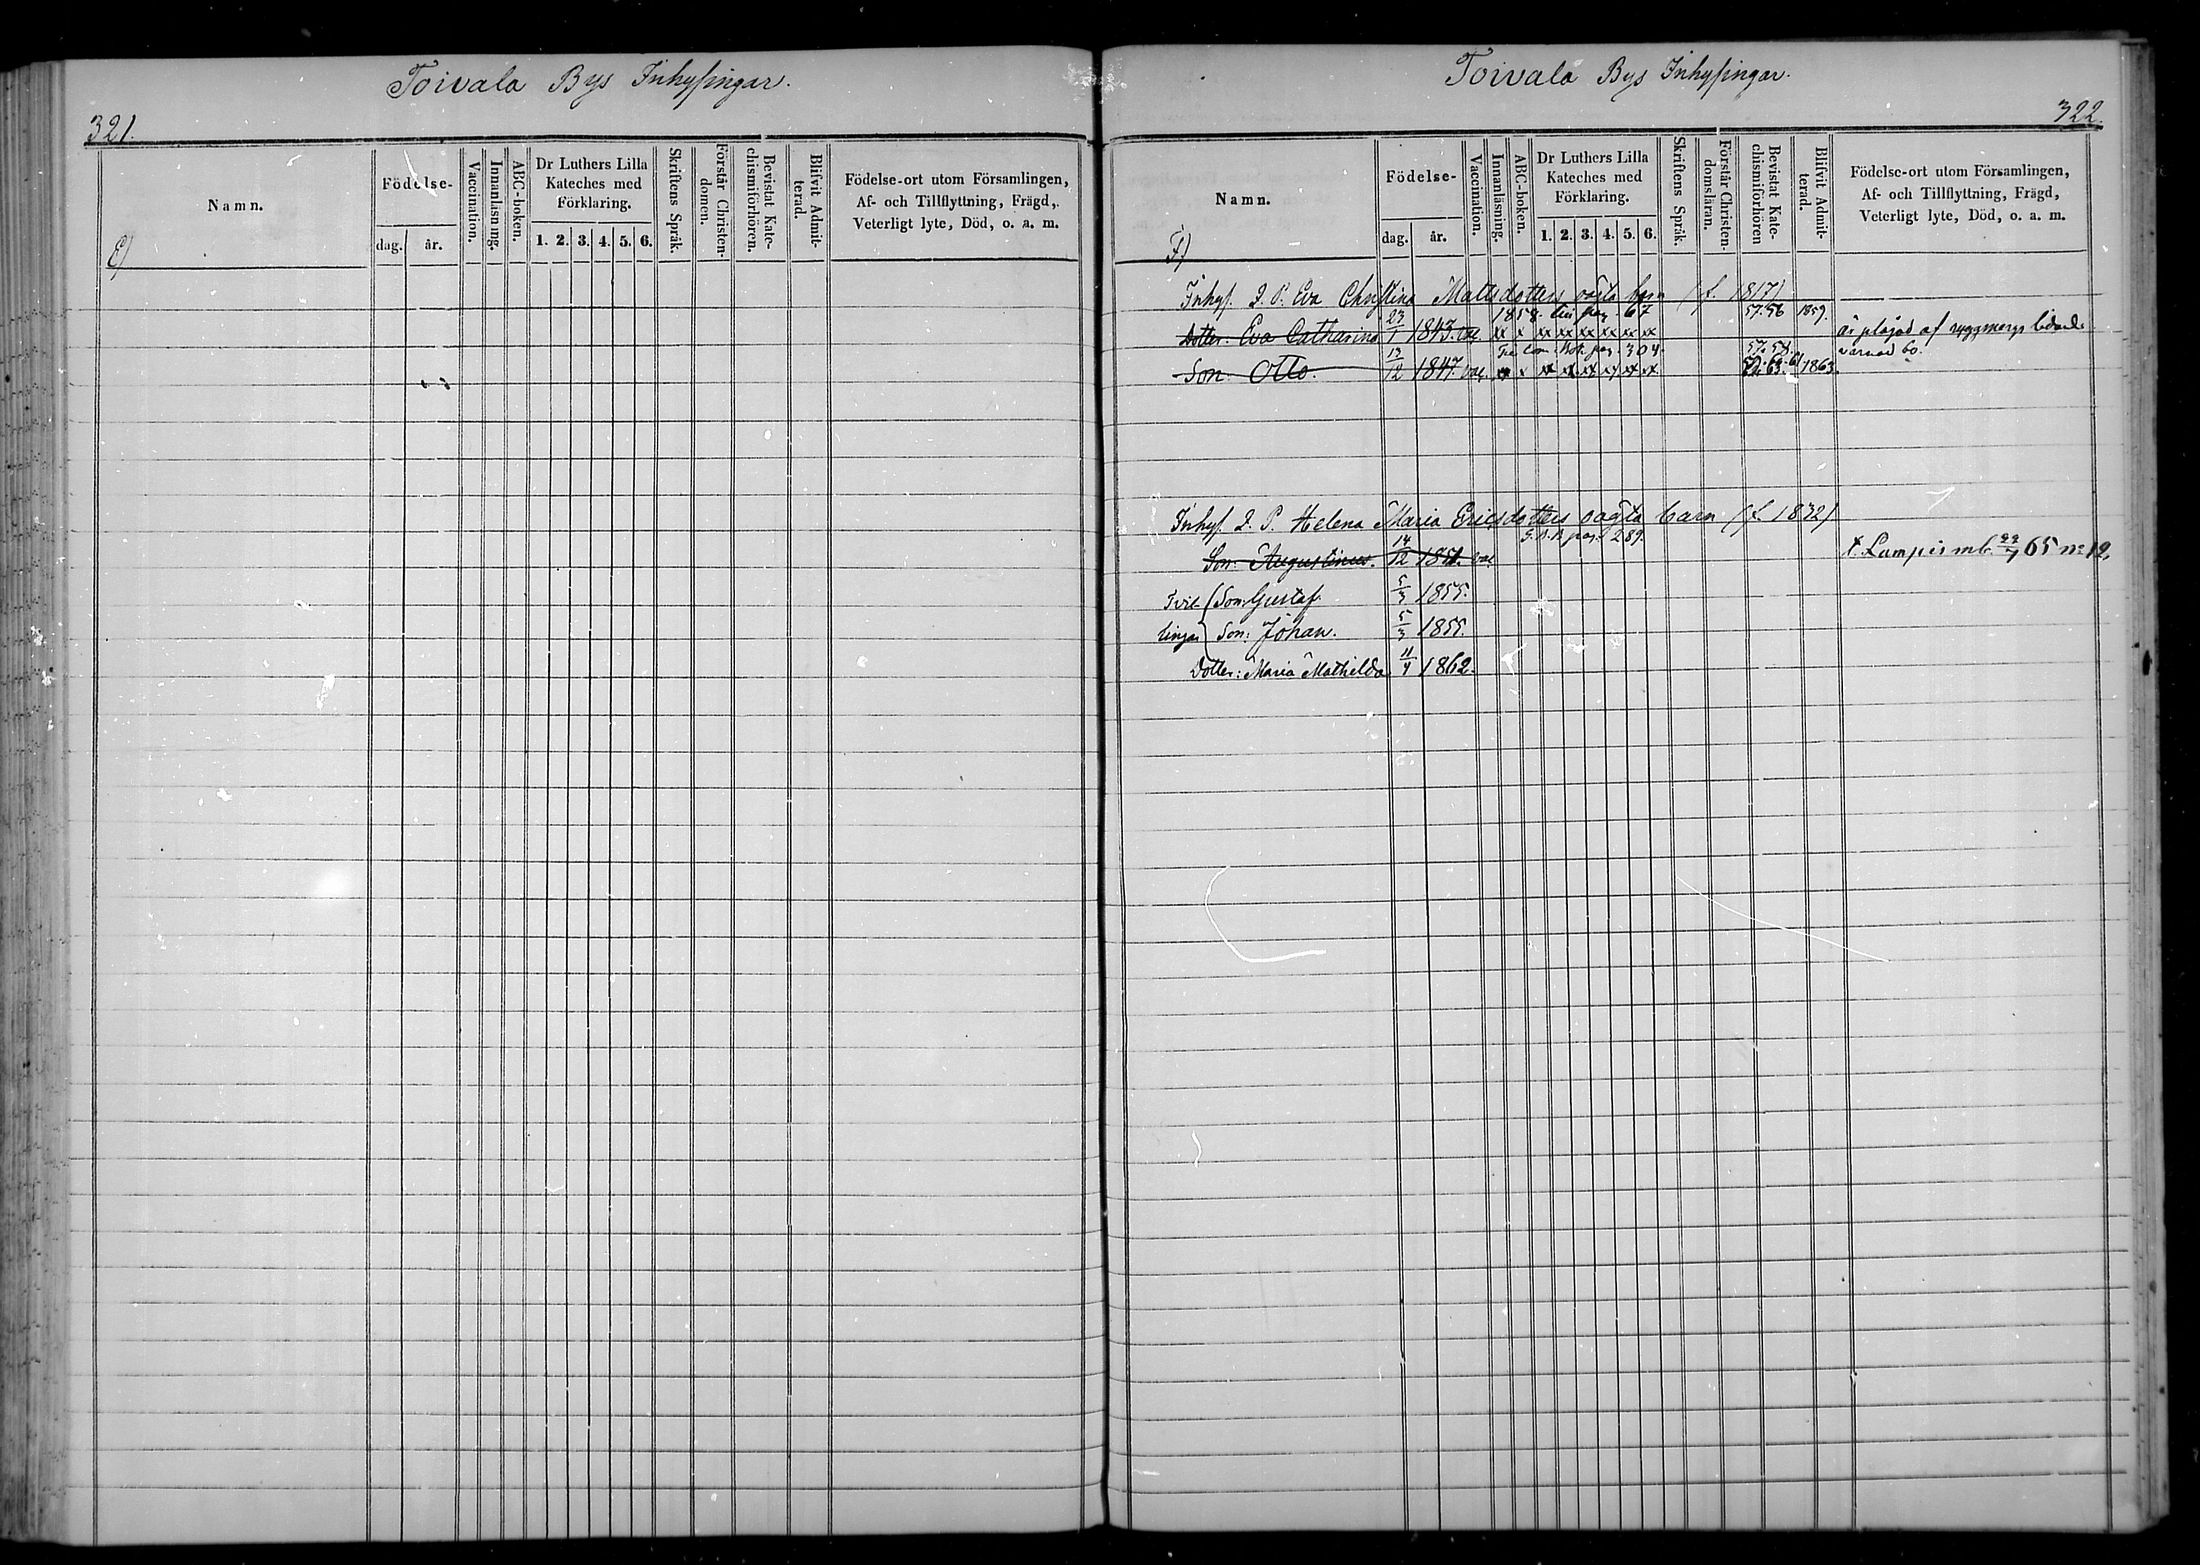 Toivala Bys Inhysingar.
321.
Namn.
Födelse-
dag.
år.
Vaccination.
Innanläsning.
ABC-boken.
Dr Luthers Lilla
Kateches med
Förklaring.
1. 2. 3. 4. 5. 6.
Skriftens Språk.
Förstår Christen-
domen.
Bevistat Kate-
chismiförhören.
Blifvit Admit-
terad.
Födelse-ort utom Församlingen,
Af- och Tillflyttning, Frägd,
Veterligt lyte, Död, o. a. m.
E)
Toivala Bys Inhysingar.
322.
Namn.
Födelse-
dag.
år.
Vaccination.
Innanläsning.
ABC-boken.
Dr Luthers Lilla
Kateches med
Förklaring.
1. 2. 3. 4. 5. 6.
Skriftens Språk.
Förstår Christen-
domsläran.
Bevistat Kate-
chismiförhören
Blifvit Admit-
terad.
Födelse-ort utom Församlingen,
Af- och Tillflyttning, Frägd,
Veterligt lyte, Död, o. a. m.
F)
Inhys. Q. P. Eva Christina Mattsdotters oägta barn (f. 1817)
1858. pag. 67 57. 56 1859.
Dotter: Eva Catharina 23/1 1843. vac. xx x xx xx xx xx xx xx är plågad af ryggmergs
pag. 304. 57. 58. 60.
Son: Otto. 13/12 1847. vac. xx x xx xx xx xx xx xx 63. 1863.
Inhys. Q. P. Helena Maria Ericsdotters oägta barn (f. 1832)
pag. 289.
Son: Augustinus. 14/12 1851. vac. t. Lampis mb. 23/7 65 no 12.
Tvil- Son: Gustaf. 5/3 1855.
lingar Son: Johan. 5/3 1855.
Dotter: Maria Mathilda 11/4 1862.